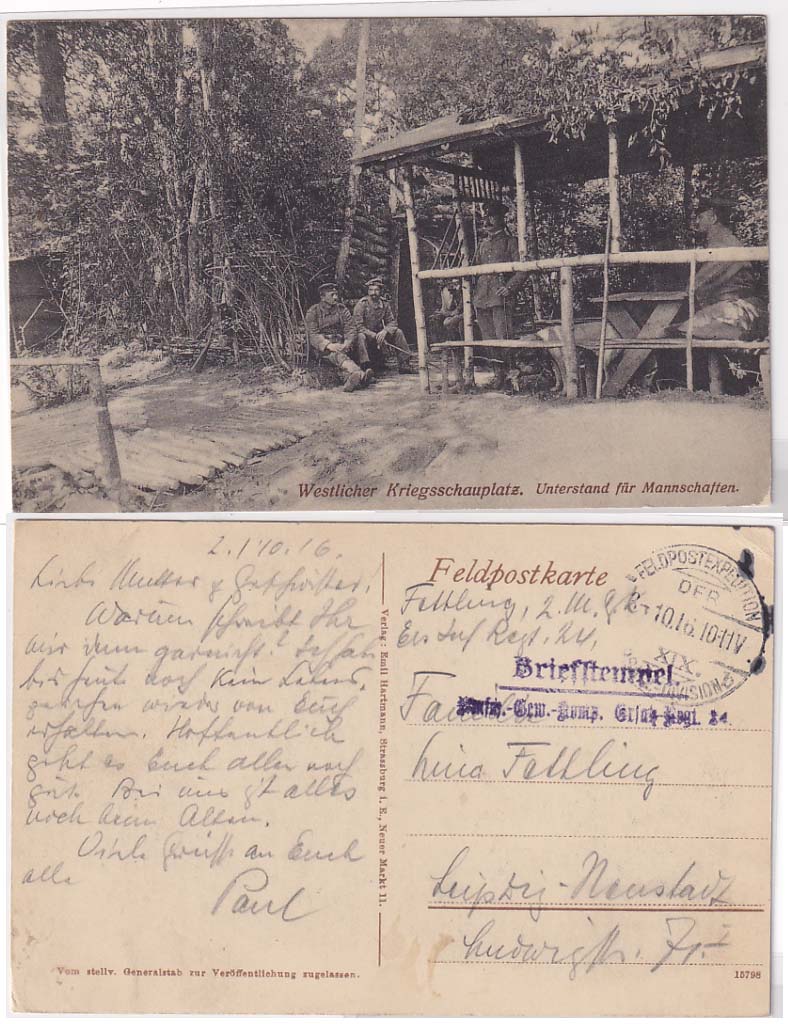 Westlicher Kriegsschauplatz. Unterstand für Mannschaften.
2./10.16.
Liebe Mutter & Geschwister!
Warum schreibt Ihr
mir denn garnicht? Ich habe
bis heute noch kein Lebens-
zeichen wieder von Euch
erhalten. Hoffentlich
geht es Euch allen noch
gut. Bei uns g't alles
noch beim Alten.
Viele Grüsse an Euch
alle Paul
Vom stellv. Generalstab zur Veröffentlichung zugelassen.
Verlag: Emil Hartmann, Strassburg i. E., Neuer Markt 11.
Feldpostkarte
Fettling, 2. M. G. K.
Ers Inf Regt. 24,
FELDPOSTEXPEDITION
DER
2.10.16.10-11V
XIX.
DIVISION
Briefstempel.
Masch.-Gew.-Komp. Ersatz-Regt. 24
Lina Fettling
Leipzig-Neustadt
Ludwigstr. 71 I
15798